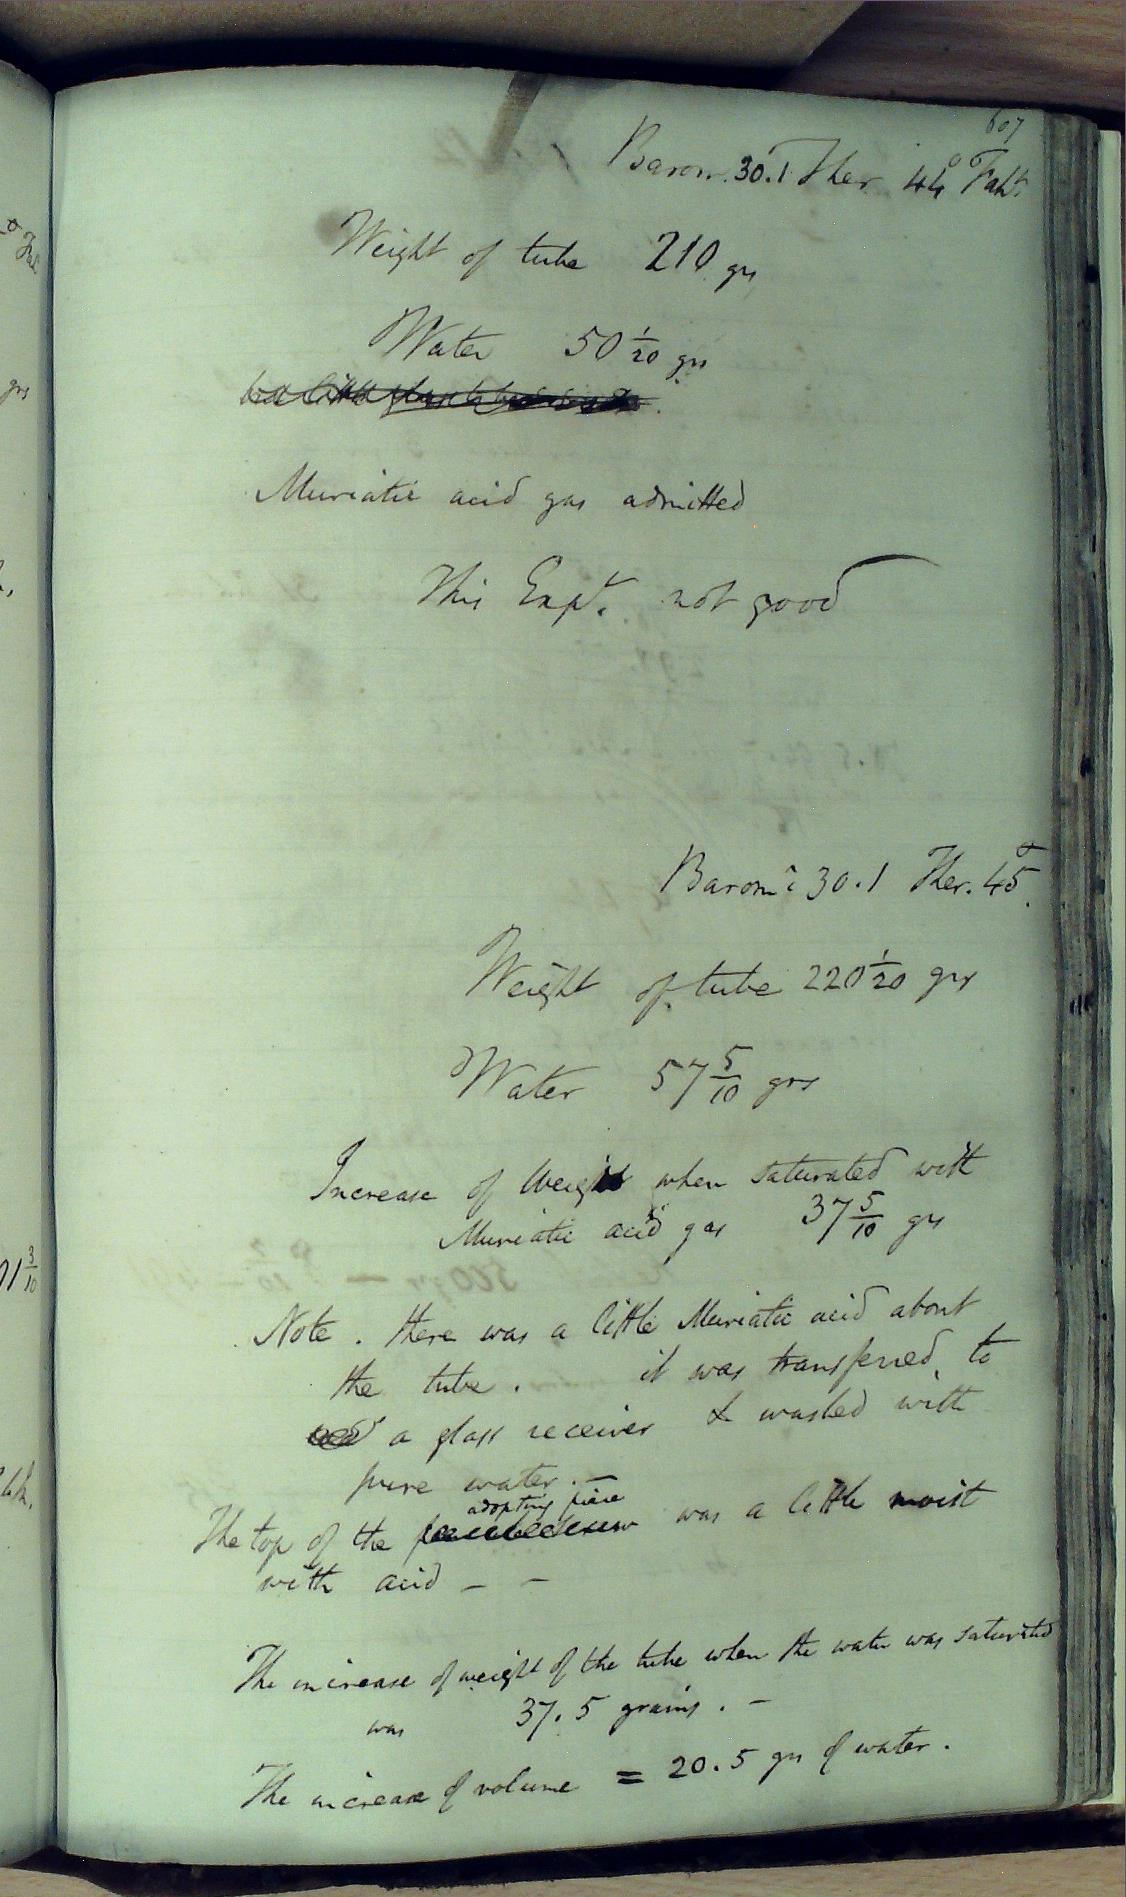 607
Barom. 30.1 Ther 44° Faht.
Weight of tube 210 grs
Water 50 1/20 grs
Muriatic acid gas admitted
This Expt. not good
Barom 30.1 Ther. 45°
Weight of tube 220 1/20 grs
Water 57 5/10 grs
Increase of Weight when saturated with
Muriatic acid gas 37 5/10 grs
Note. there was a little Muriatic acid about
the tube. it was transferred to
a glass receiver & washed with
pure water. —
adopting piece
The top of the was a little moist
with acid — —
The increase of weight of the tube when the water was saturated
was 37.5 grains. —
The increase of volume = 20.5 grs of water.